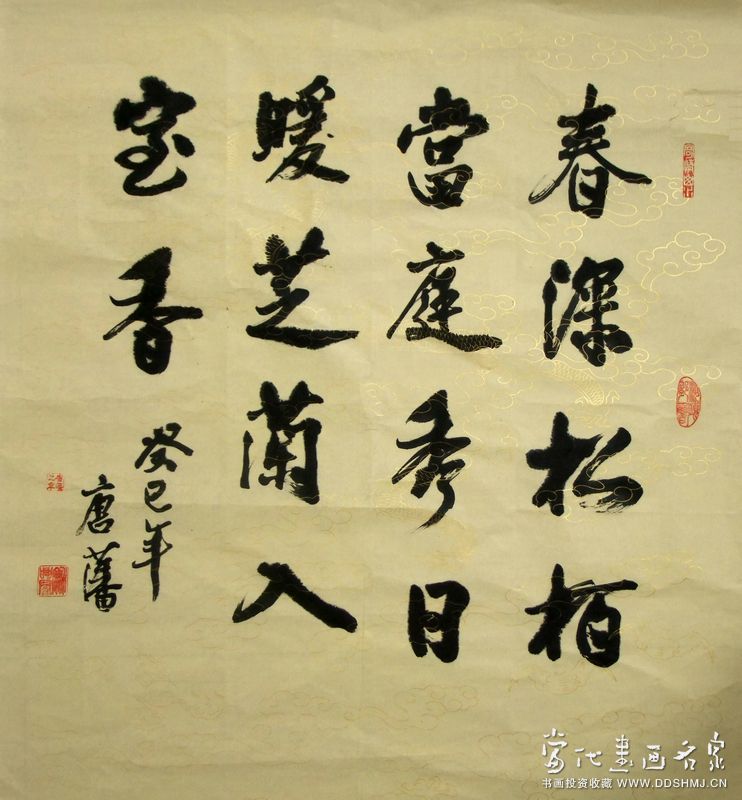 春深松柏
當庭秀日
暖芝蘭入
室香
癸巳年
唐藩
當代書画名家
书画投资收藏 WWW.DDSHMJ.CN